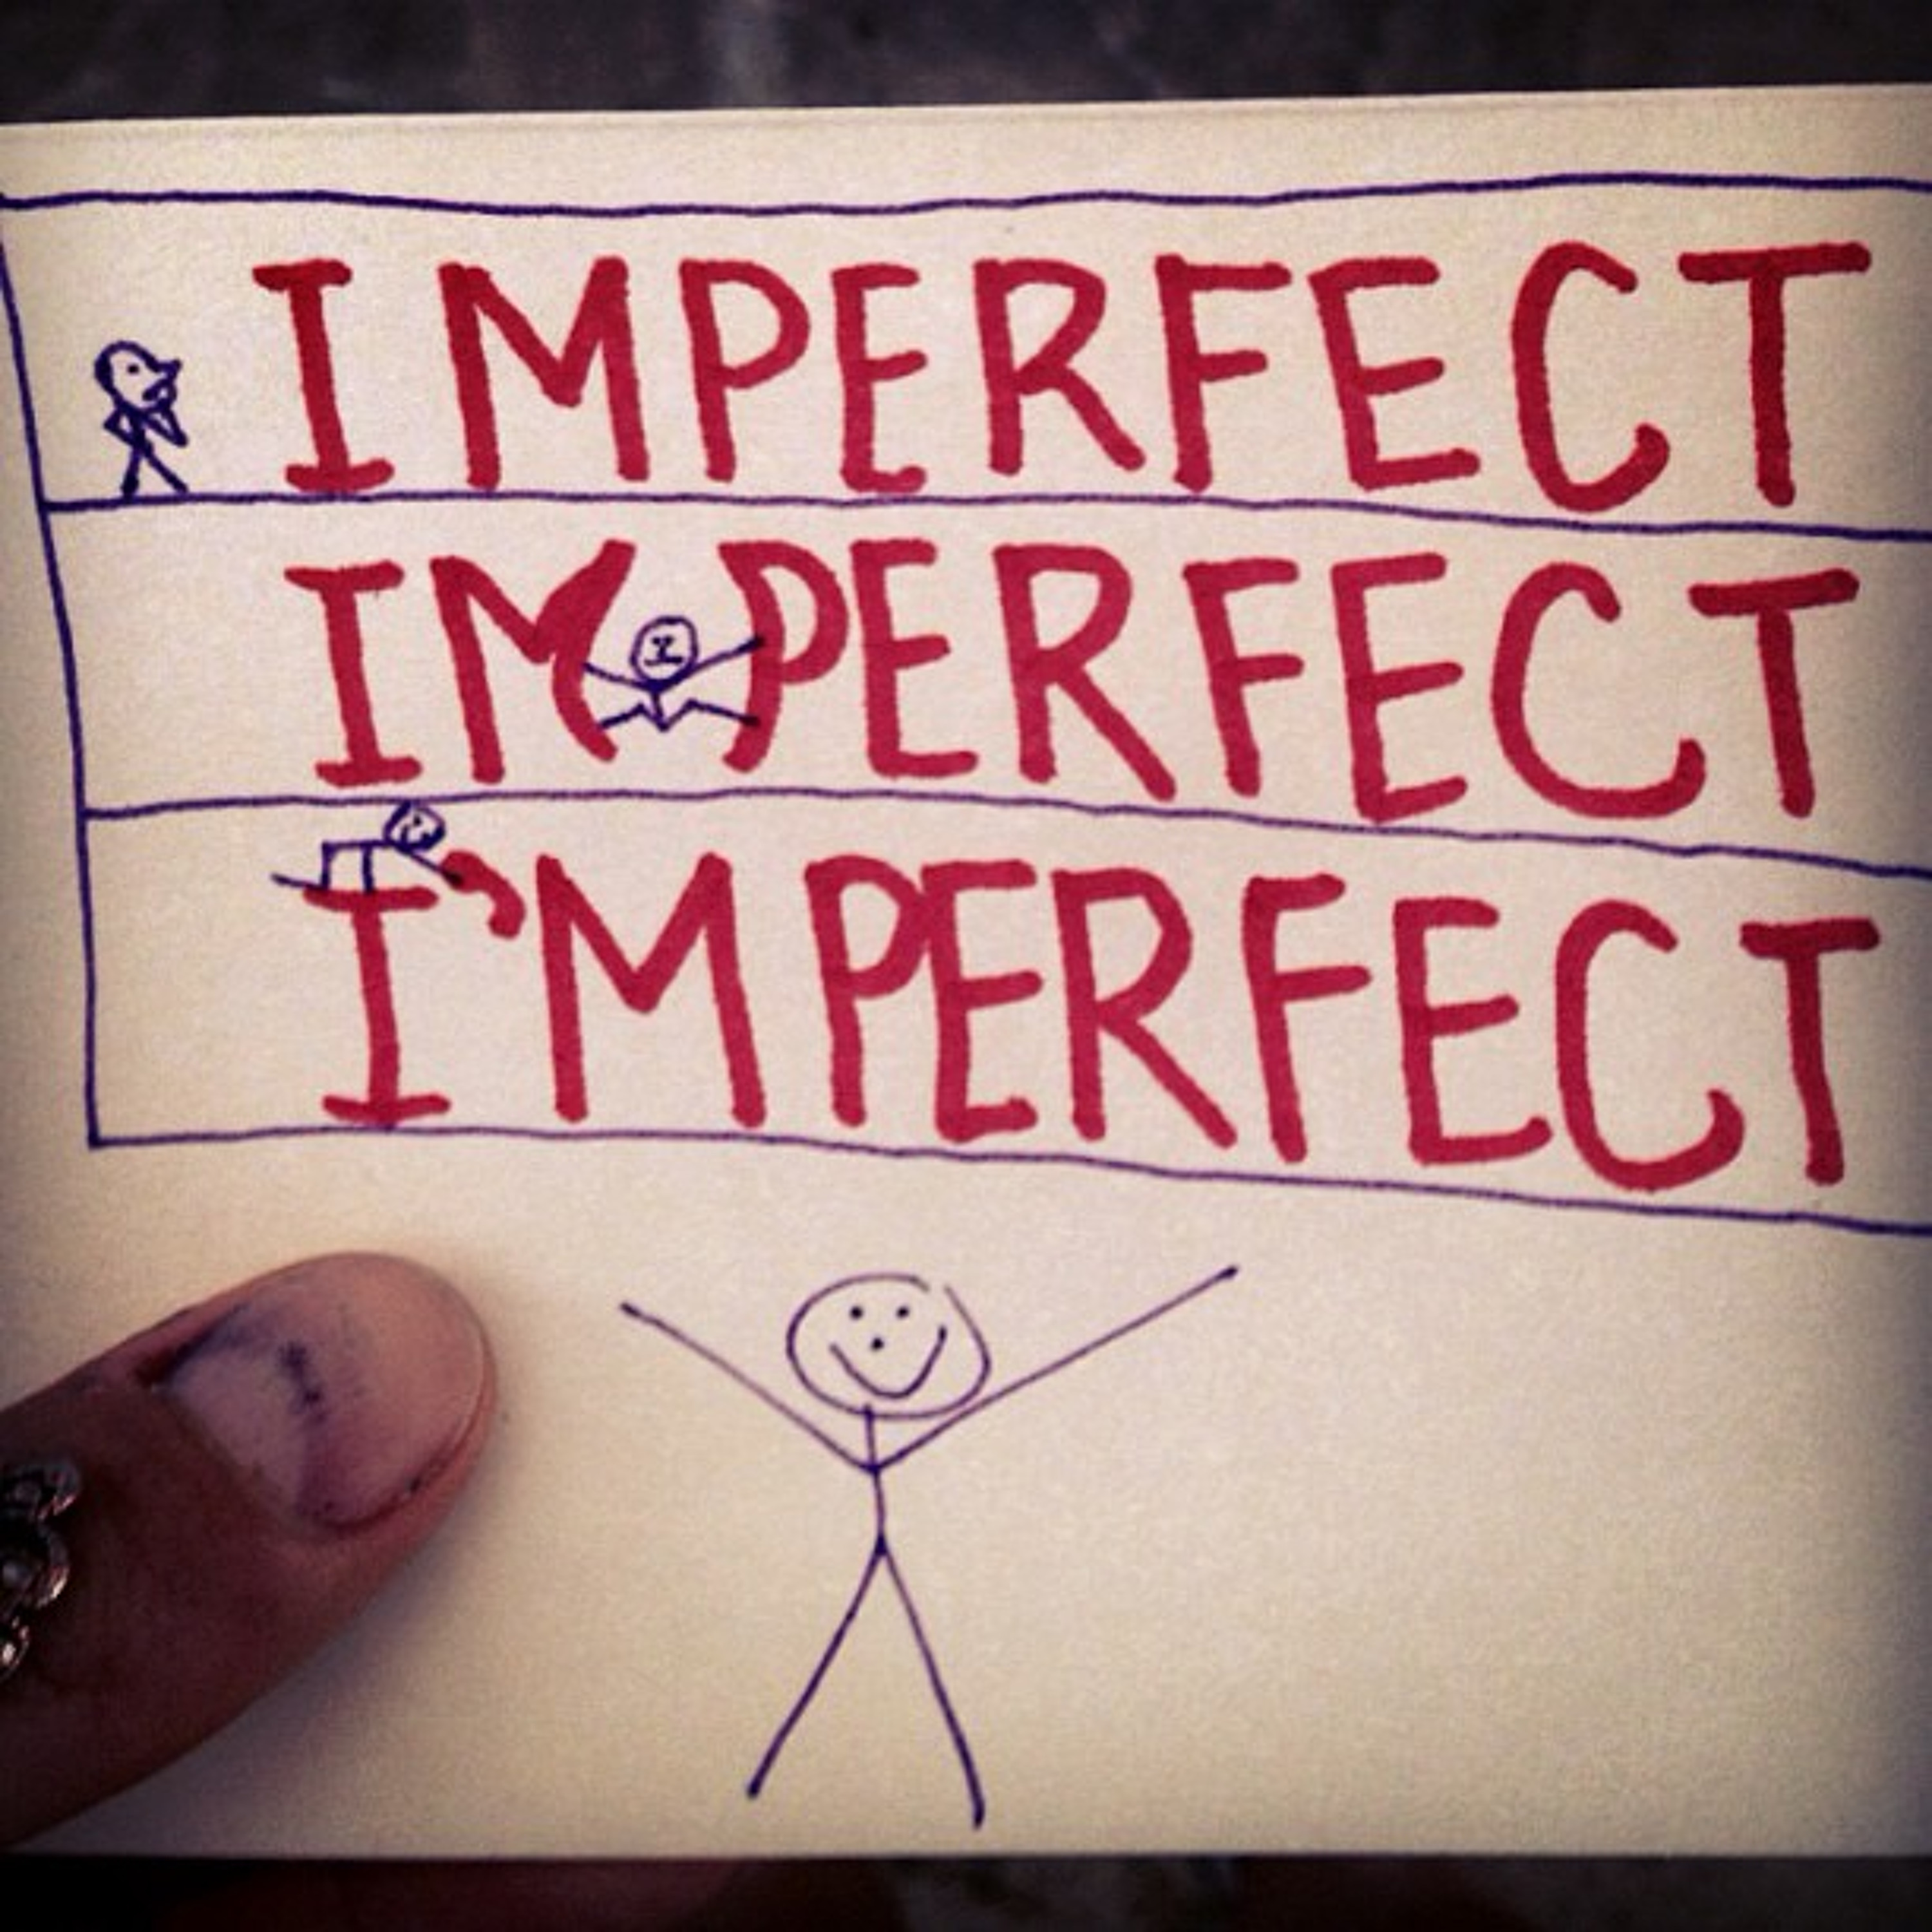 IMPERFECT
IM PERFECT
I'M PERFECT